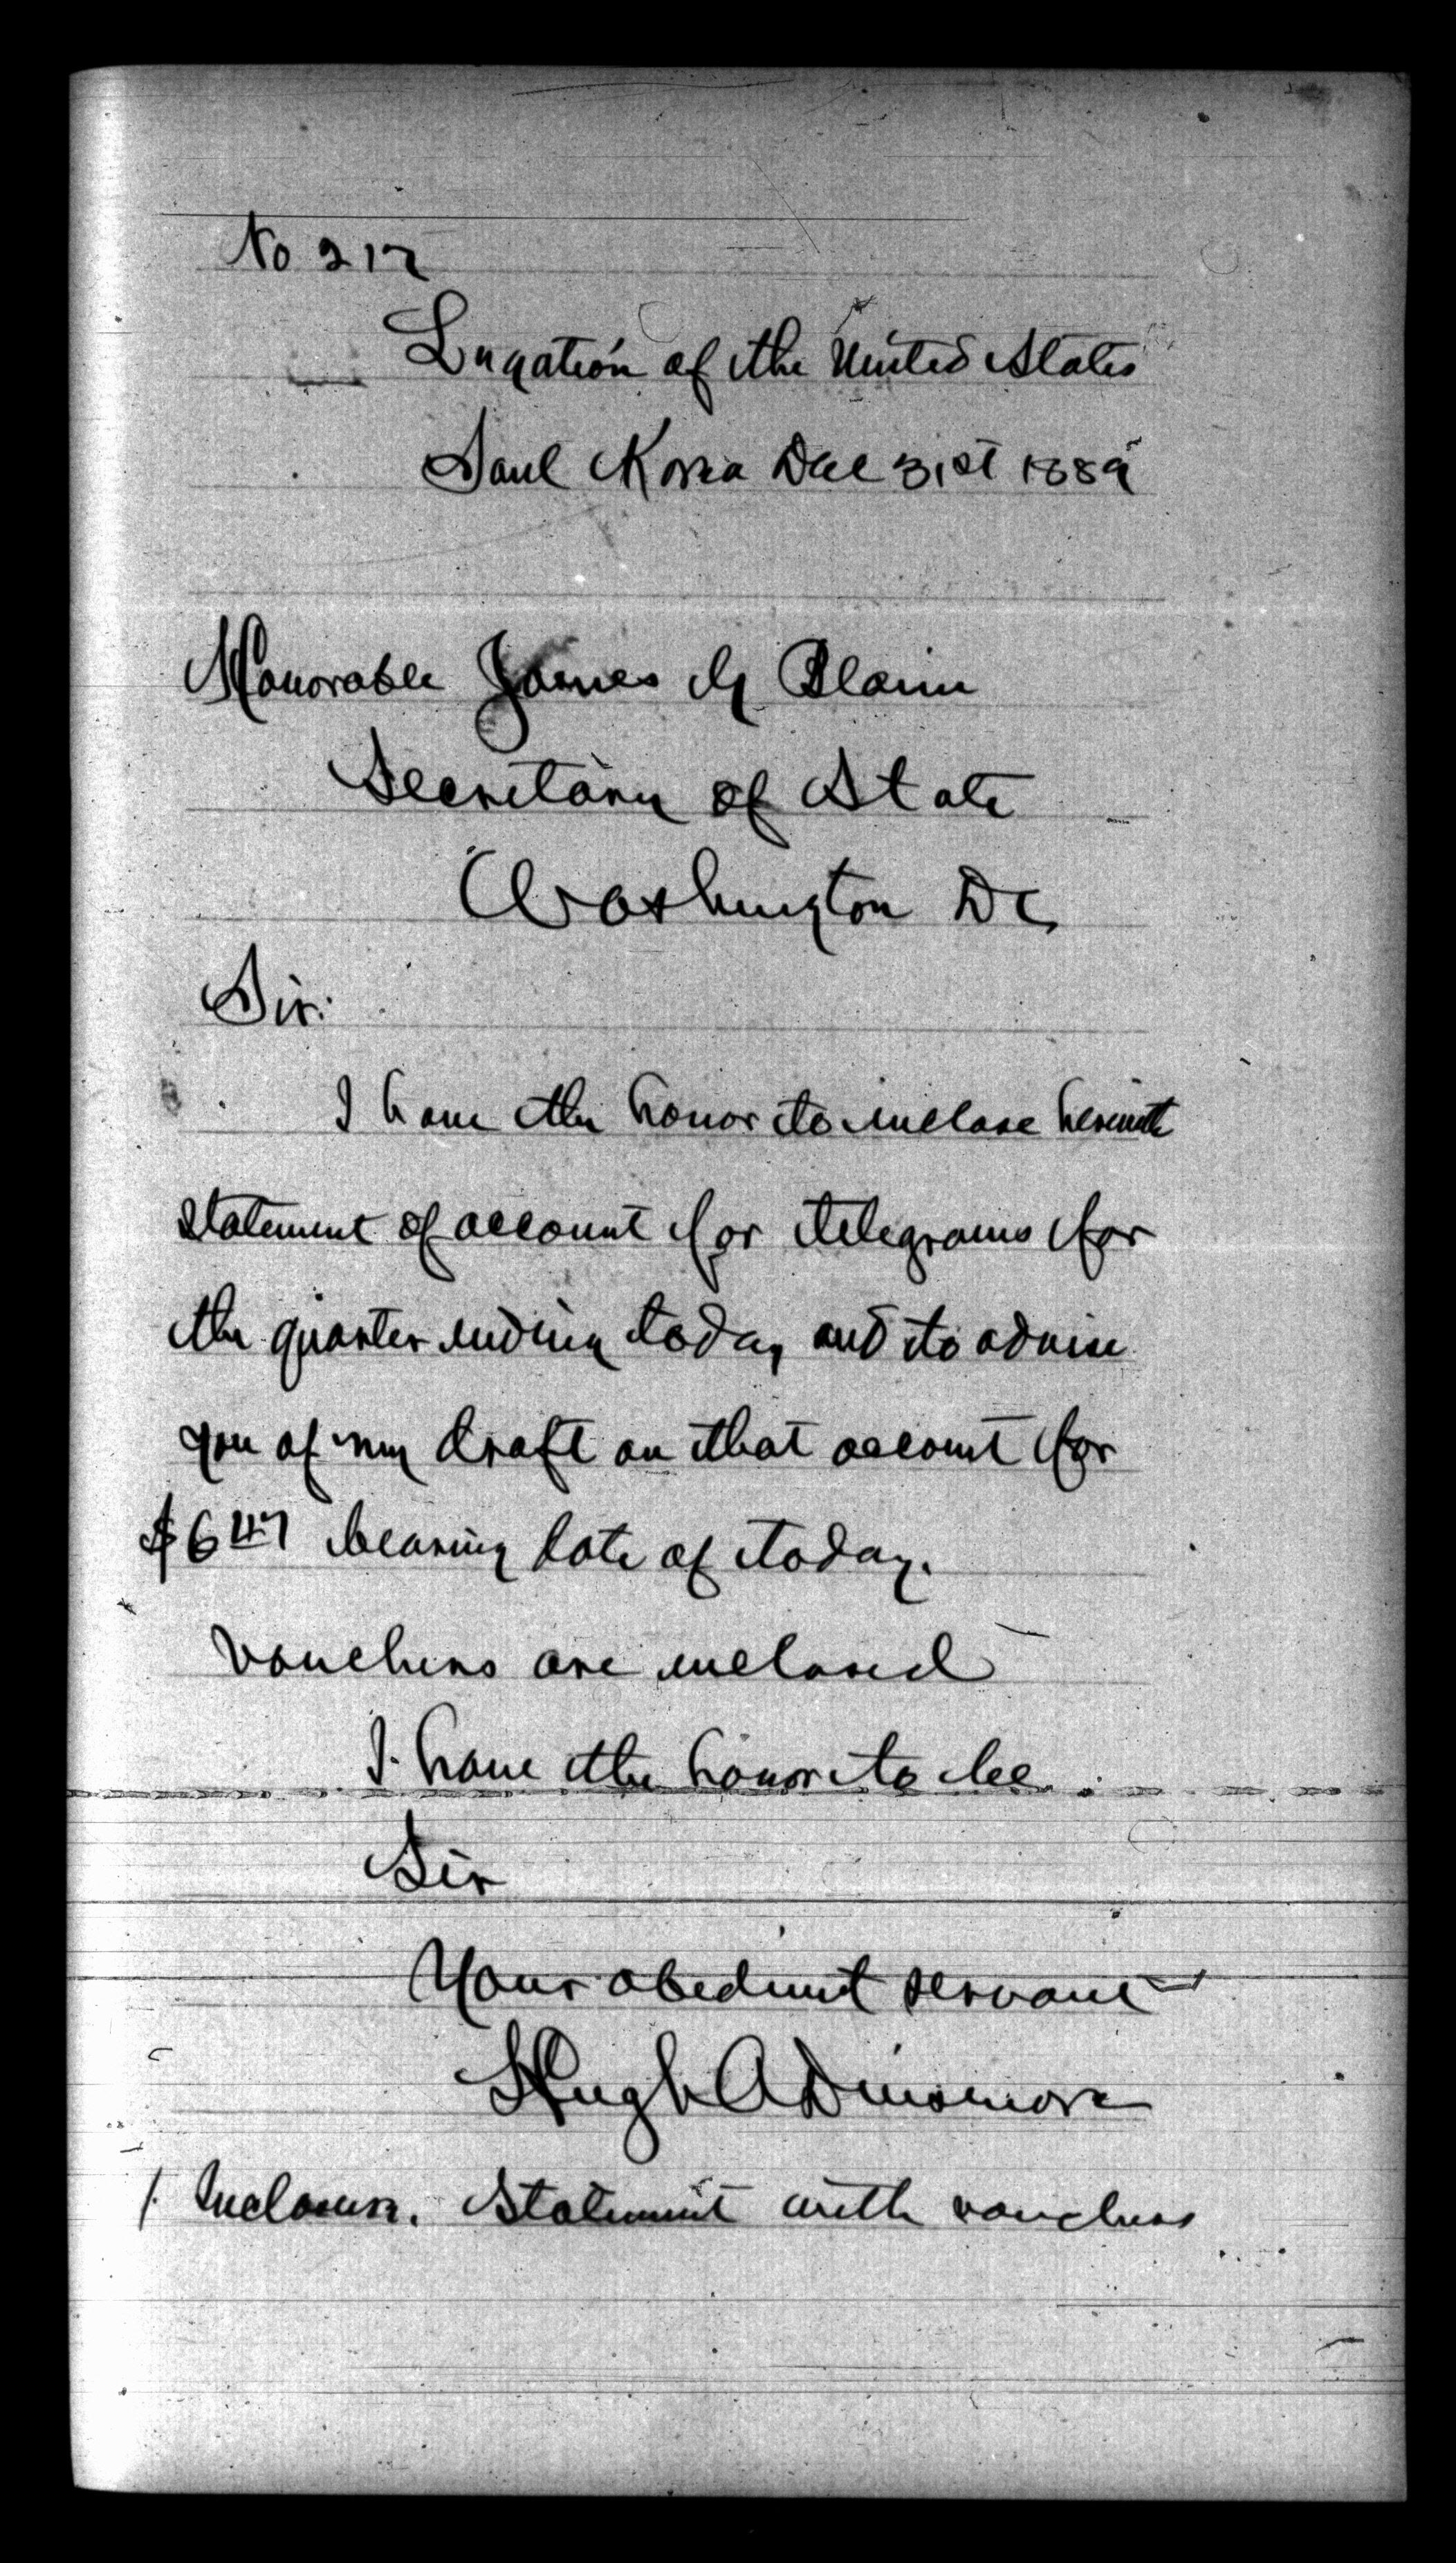 No 217
Legation of the United States
Saul Korea Dec 31st 1889
Honorable James G Blaine
Secretary of State
Washington DC,
Sir:
I have the honor to inclose herewith
statement of account for telegrams for
the quarter ending today and to advise
you of my draft on that account for
$6 47 bearing date of today.
Vouchers are inclosed
I have the honor to be
Sir
Your obedient servant
Hugh A Dinsmore
1. Inclosure. Statement with vouchers